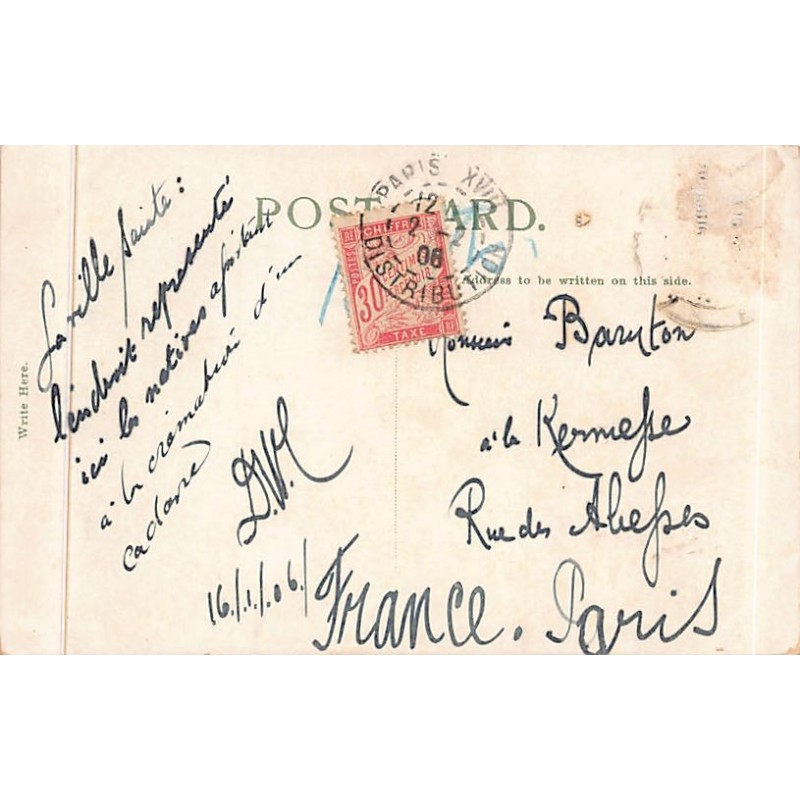 POST CARD.
Write Here.
Address to be written on this side.
La ville sainte :
l'endroit représenté
ici les natives assistant
à la crémation d'un
cadavre
D.V.
16/1/06/
Monsieur Baryton
à la Kermesse
Rue des Abesses
France. Paris
PARIS XVIII
12
2 - 2
06
DISTRIBUTION
CHIFFRE
30
TAXE